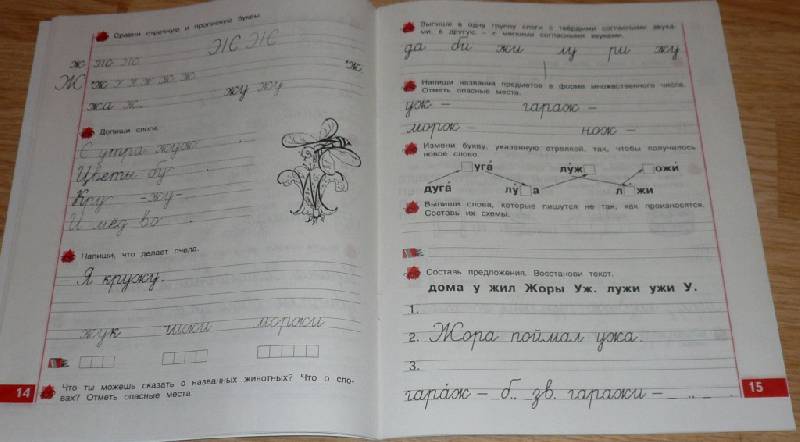 Сравни строчную и прописную буквы.
Ж Ж
ж ж ж ж
Ж ж ж ж ж ж ж
жа ж... жу жу
Допиши слова.
С утра жуж
Цветы бу
Кру -жу-
И мёд во
Напиши, что делает пчела.
Я кружу.
жук чижи моржи
Что ты можешь сказать о названных животных? Что о сло-
вах? Отметь опасные места.
14
Выпиши в одну группу слоги с твёрдыми согласными звука-
ми, в другую – с мягкими согласными звуками.
да би жи лу ри жу
Напиши названия предметов в форме множественного числа.
Отметь опасные места.
уж – гараж –
морж – нож –
Измени букву, указанную стрелкой, так, чтобы получилось
новое слово.
уга́ лу́ж ожи́
дуга́ лу а л жи
Выпиши слова, которые пишутся не так, как произносятся.
Составь их схемы.
Составь предложения. Восстанови текст.
дома у жил Жоры Уж. лужи ужи У.
1.
2. Жора поймал ужа.
3.
гара́ж – б.. зв. гаражи –
15